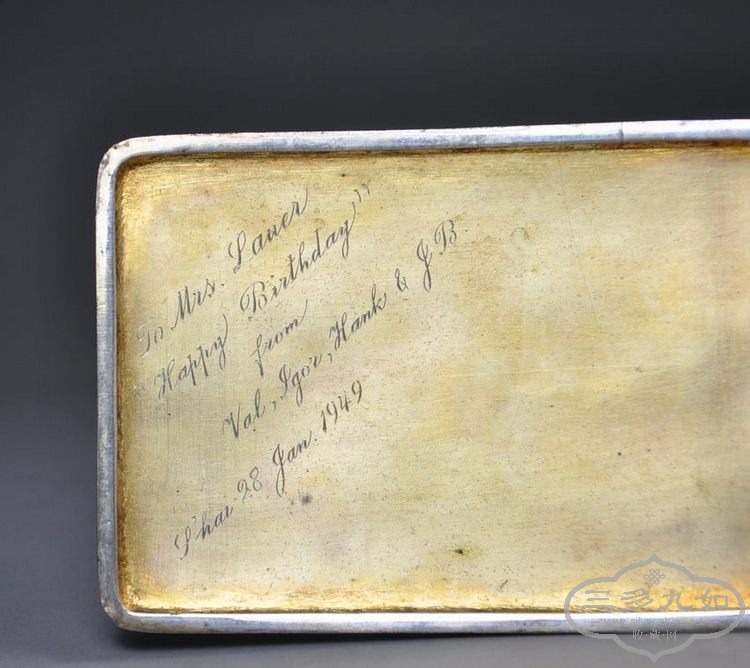 To Mrs. Lauer
"Happy Birthday"
from
Val, Igor, Hank & J.B.
S'hai 28 Jan. 1949
三多九如
收藏网